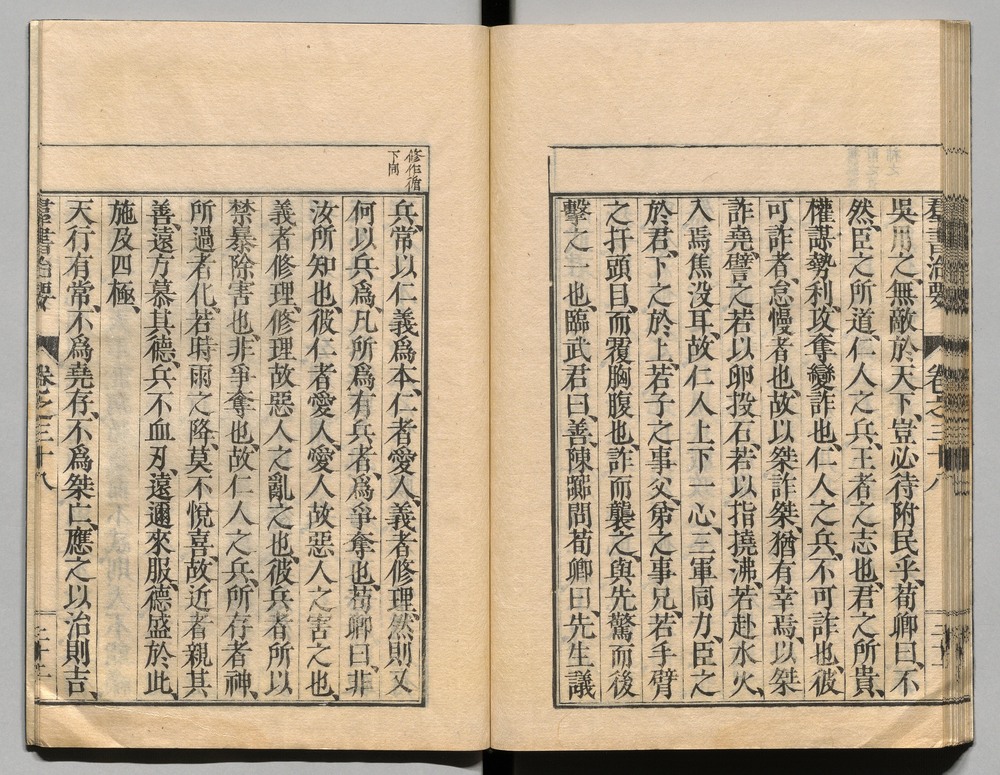 羣書治要 卷之三十八
吳用之、無敵於天下、豈必待附民乎、荀卿曰、不
然、臣之所道、仁人之兵、王者之志也、君之所貴、
權謀勢利、攻奪變詐也、仁人之兵、不可詐也、彼
可詐者、怠慢者也、故以桀詐桀、猶有幸焉、以桀
詐堯、譬之若以卵投石、若以指撓沸、若赴水火、
入焉焦没耳、故仁人上下一心、三軍同力、臣之
於君、下之於上、若子之事父、弟之事兄、若手臂
之扞頭目、而覆胸腹也、詐而襲之、與先驚而後
擊之一也、臨武君曰、善、陳囂問荀卿曰、先生議
修作循
下同
兵、常以仁義爲本、仁者愛人、義者修理、然則又
何以兵爲、凡所爲有兵者、爲爭奪也、荀卿曰、非
汝所知也、彼仁者愛人、愛人故惡人之害之也、
義者修理、修理故惡人之亂之也、彼兵者所以
禁暴除害也、非爭奪也、故仁人之兵、所存者神、
所過者化、若時雨之降、莫不悅喜、故近者親其
善、遠方慕其德、兵不血刃、遠邇來服、德盛於此、
施及四極、
天行有常、不爲堯存、不爲桀亡、應之以治則吉、
羣書治要 卷之三十八